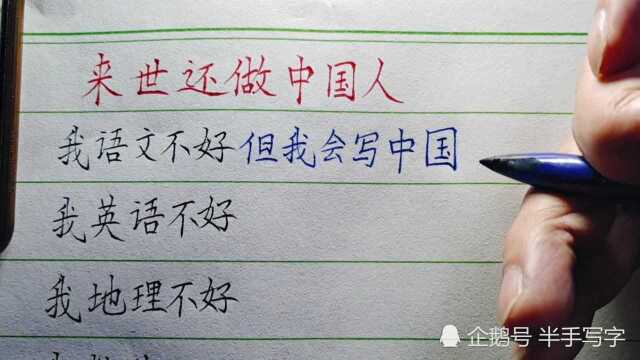 来世还做中国人
我语文不好但我会写中国
我英语不好
我地理不好
企鹅号 半手写字